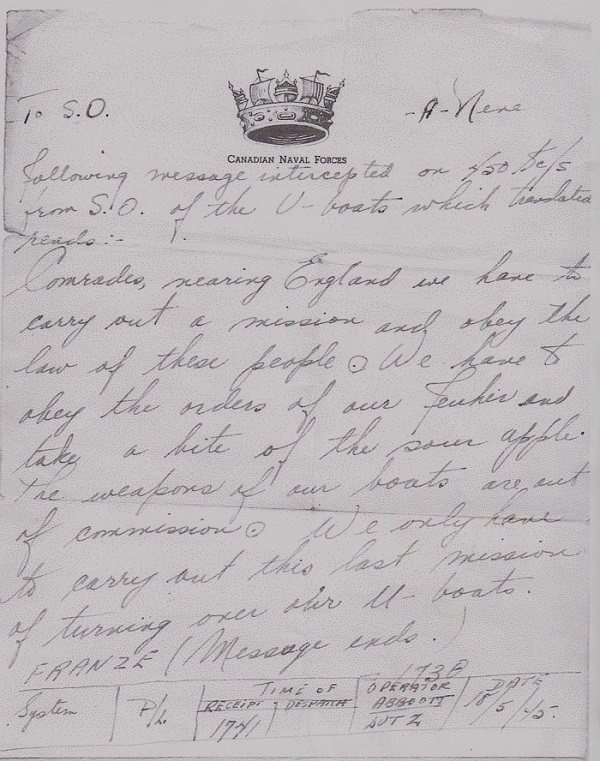 To S.O. -A- Nene
CANADIAN NAVAL FORCES
following message intercepted on 4/50 Kc/s
from S.O. of the U-boats which translated
reads:-
Comrades, nearing England we have to
carry out a mission and obey the
law of these people. We have to
obey the orders of our Feuhir and
take a bite of the sour apple.
The weapons of our boats are out
of commission. We only have
to carry out this last mission
of turning over our U-boats.
FRANZE (Message ends.)
173θ
System P/L TIME OF OPERATOR DATE
RECEIPT DESPATCH ABBOTT 18/5/45.
1741